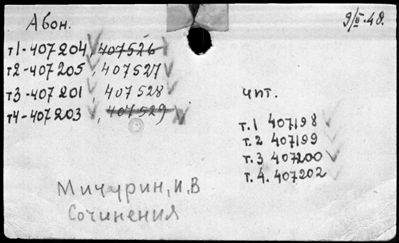 Абон.
9/II-48.
т1-407204, 407526
т2-407205, 407527
т3-407201, 407528
т4-407203, 407529
чит.
т.1 407198
т.2 407199
т.3 407200
т.4. 407202
Мичурин, И, В
Сочинения